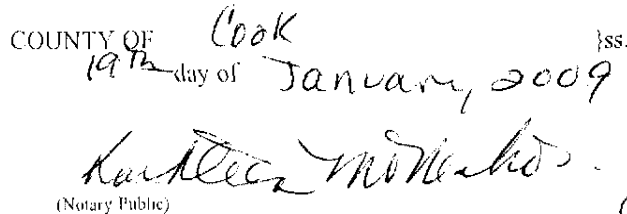 COUNTY OF Cook }ss.
19th day of January, 2009
(Notary Public)